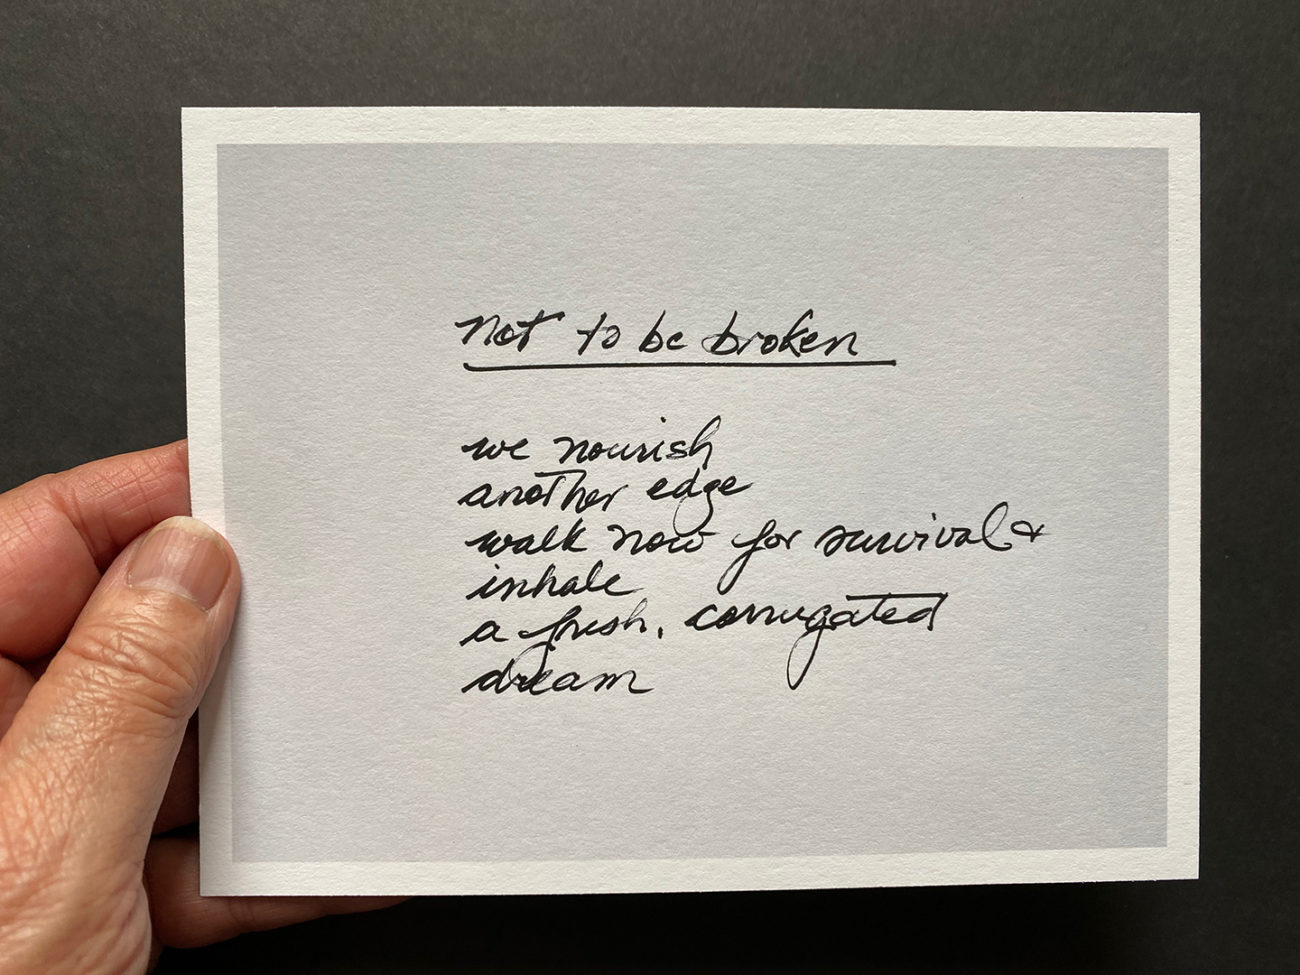 not to be broken
we nourish
another edge
walk now for survival &
inhale
a fresh, corrugated
dream